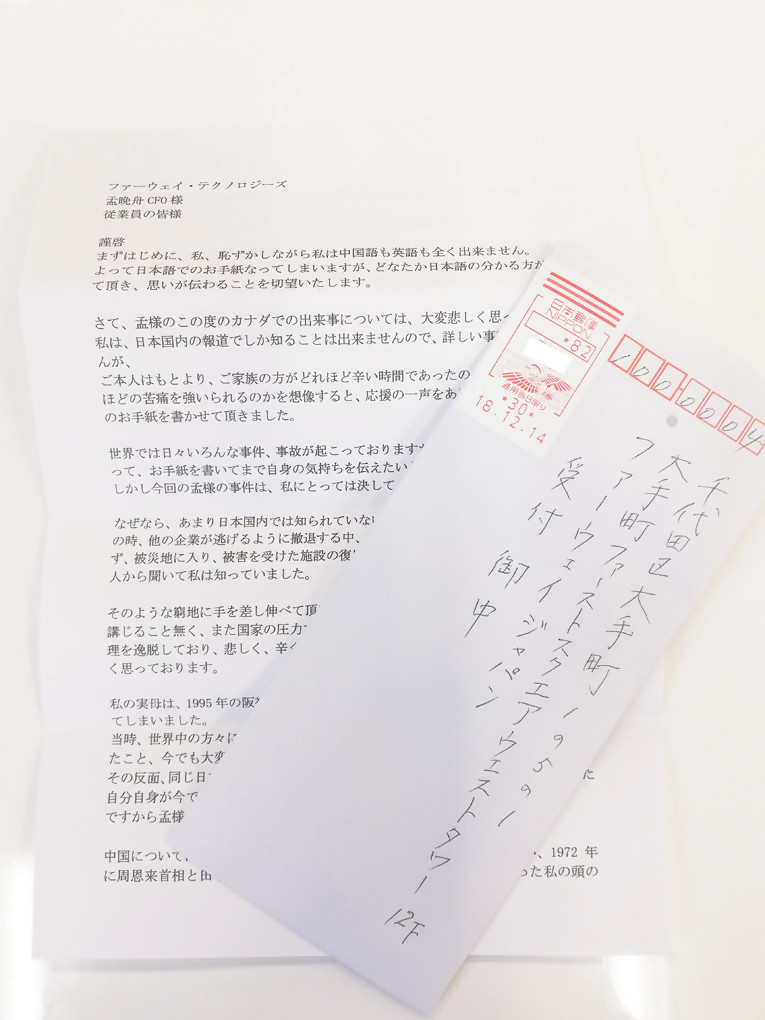 ファーウェイ・テクノロジーズ
孟晩舟 CFO 様
従業員の皆様
謹啓
まずはじめに、私、恥ずかしながら私は中国語も英語も全く出来ません。
よって日本語でのお手紙なってしまいますが、どなたか日本語の分かる方が
て頂き、思いが伝わることを切望いたします。
さて、孟様のこの度のカナダでの出来事については、大変悲しく思っ
私は、日本国内の報道でしか知ることは出来ませんので、詳しい事
んが、
ご本人はもとより、ご家族の方がどれほど辛い時間であったの
ほどの苦痛を強いられるのかを想像すると、応援の一声をあ
のお手紙を書かせて頂きました。
世界では日々いろんな事件、事故が起こっておりますか
って、お手紙を書いてまで自身の気持ちを伝えたい
しかし今回の孟様の事件は、私にとっては決して
なぜなら、あまり日本国内では知られていない
の時、他の企業が逃げるように撤退する中、
ず、被災地に入り、被害を受けた施設の復
人から聞いて私は知っていました。
そのような窮地に手を差し伸べて頂
講じること無く、また国家の圧力
理を逸脱しており、悲しく、辛く
く思っております。
私の実母は、1995 年の阪神
てしまいました。
当時、世界中の方々に
たこと、今でも大変
その反面、同じ日 に
自分自身が今で
ですから孟様
中国について、 、1972 年
に周恩来首相と田 った私の頭の
日本郵便
NIPPON
*82
適用当日限り
*30*
18.12.14
1000004
千代田区大手町1の5の1
大手町ファーストスクエアウエストタワー12F
ファーウェイジャパン
受付 御中